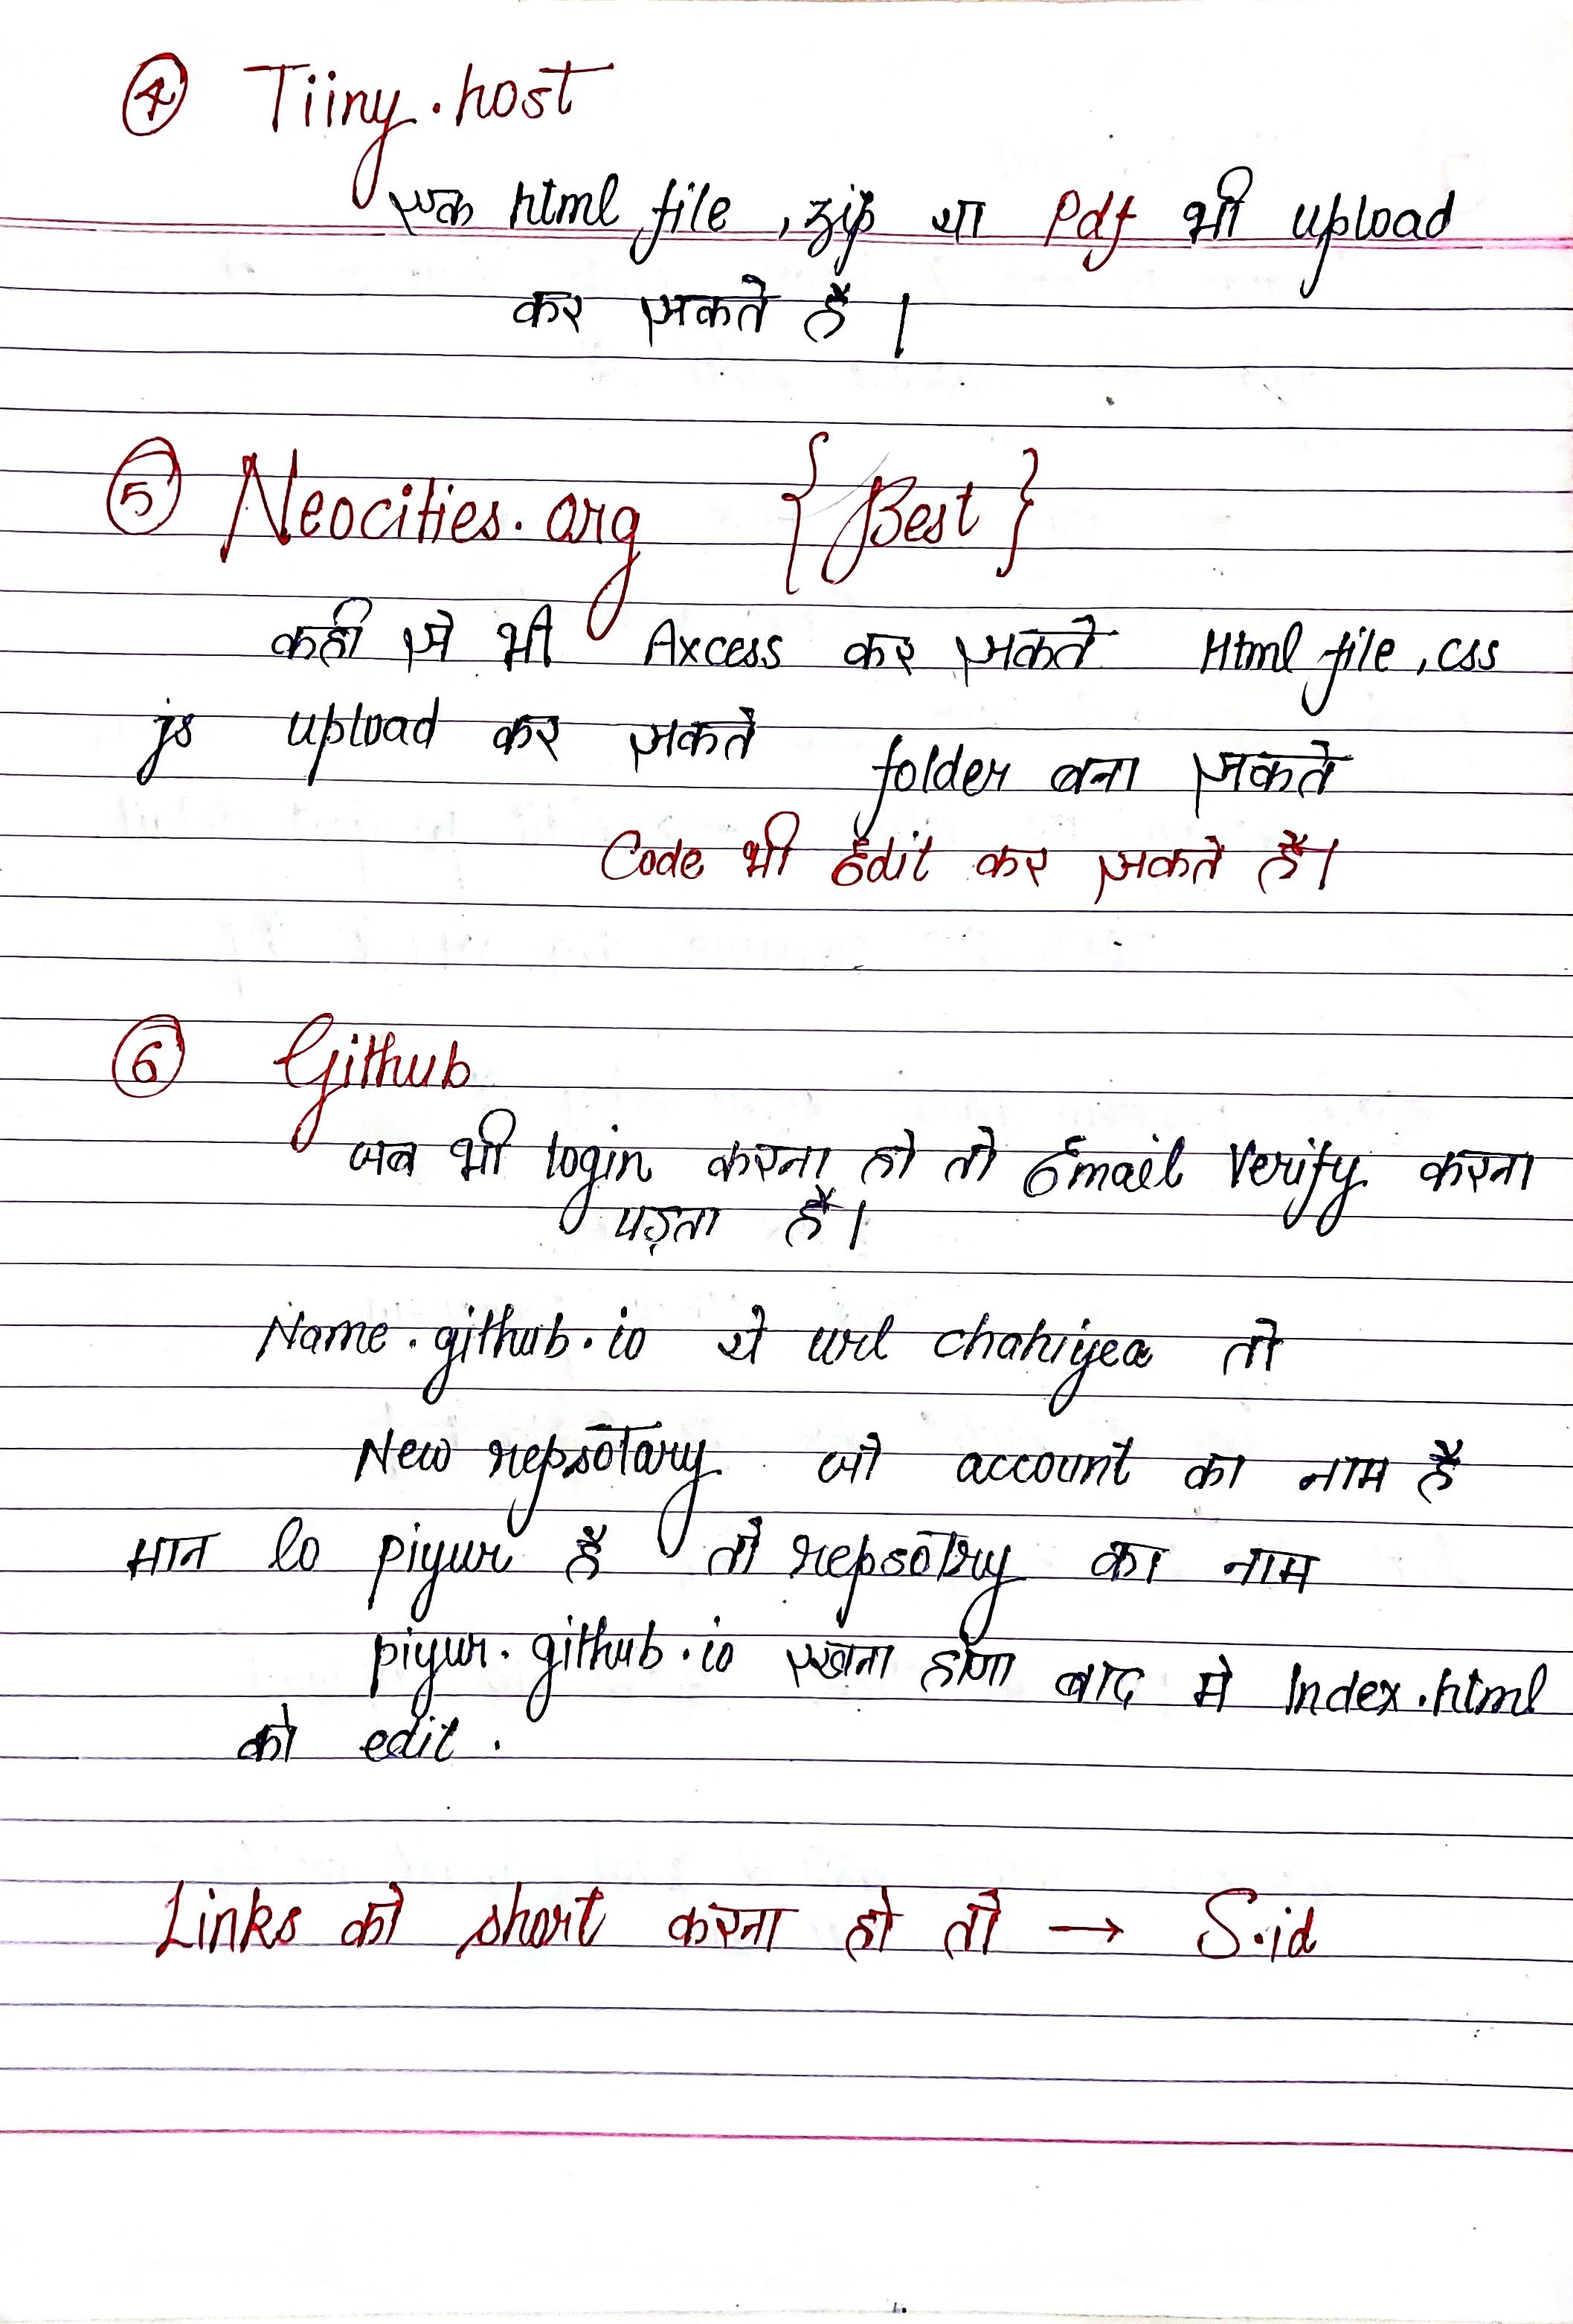 ④ Tiiny.host
एक html file, zip या Pdf भी upload
कर सकते हैं।
⑤ Neocities.org {Best}
कही से भी Axcess कर सकते Html file, css
js upload कर सकते folder बना सकते
Code भी Edit कर सकते हैं।
⑥ Github
जब भी login करना हो तो Email Verify करना
पड़ता हैं।
Name.github.io ये url chahiyea तो
New repsotary जो account का नाम हैं
मान lo piyur हैं तो repsotry का नाम
piyur.github.io रखना होगा बाद मे Index.html
को edit.
Links को short करना हो तो → S.id